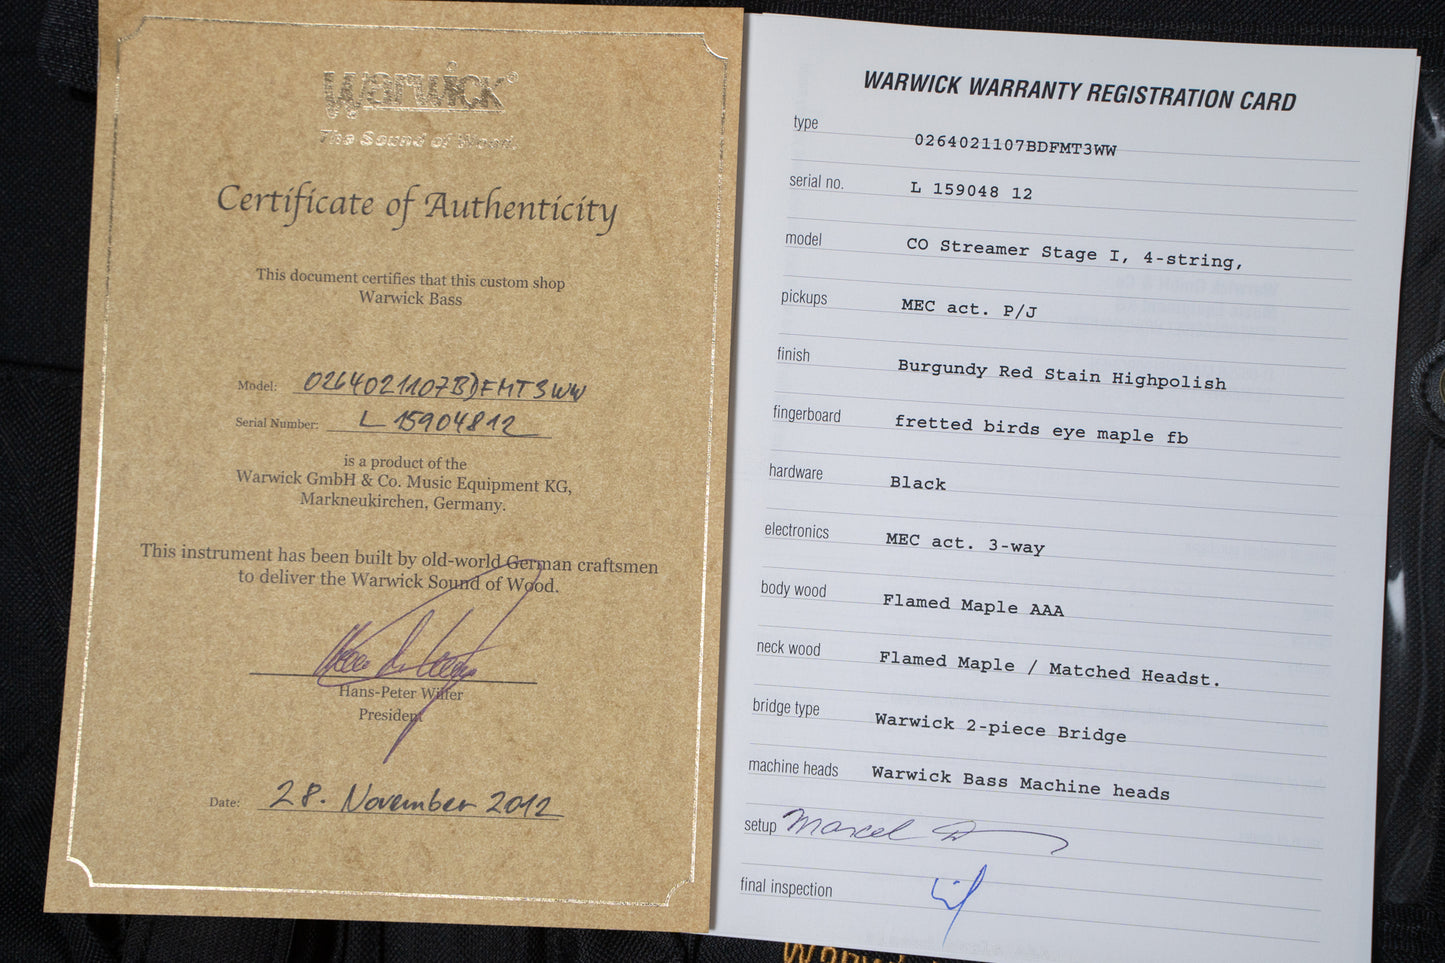 warwick®
The Sound of Wood.
Certificate of Authenticity
This document certifies that this custom shop
Warwick Bass
Model: 0264021107BDFMT3WW
Serial Number: L 15904812
is a product of the
Warwick GmbH & Co. Music Equipment KG,
Markneukirchen, Germany.
This instrument has been built by old-world German craftsmen
to deliver the Warwick Sound of Wood.
Hans-Peter Wilfer
President
Date: 28. November 2012
WARWICK WARRANTY REGISTRATION CARD
type 0264021107BDFMT3WW
serial no. L 159048 12
model CO Streamer Stage I, 4-string,
pickups MEC act. P/J
finish Burgundy Red Stain Highpolish
fingerboard fretted birds eye maple fb
hardware Black
electronics MEC act. 3-way
body wood Flamed Maple AAA
neck wood Flamed Maple / Matched Headst.
bridge type Warwick 2-piece Bridge
machine heads Warwick Bass Machine heads
setup Marcel
final inspection